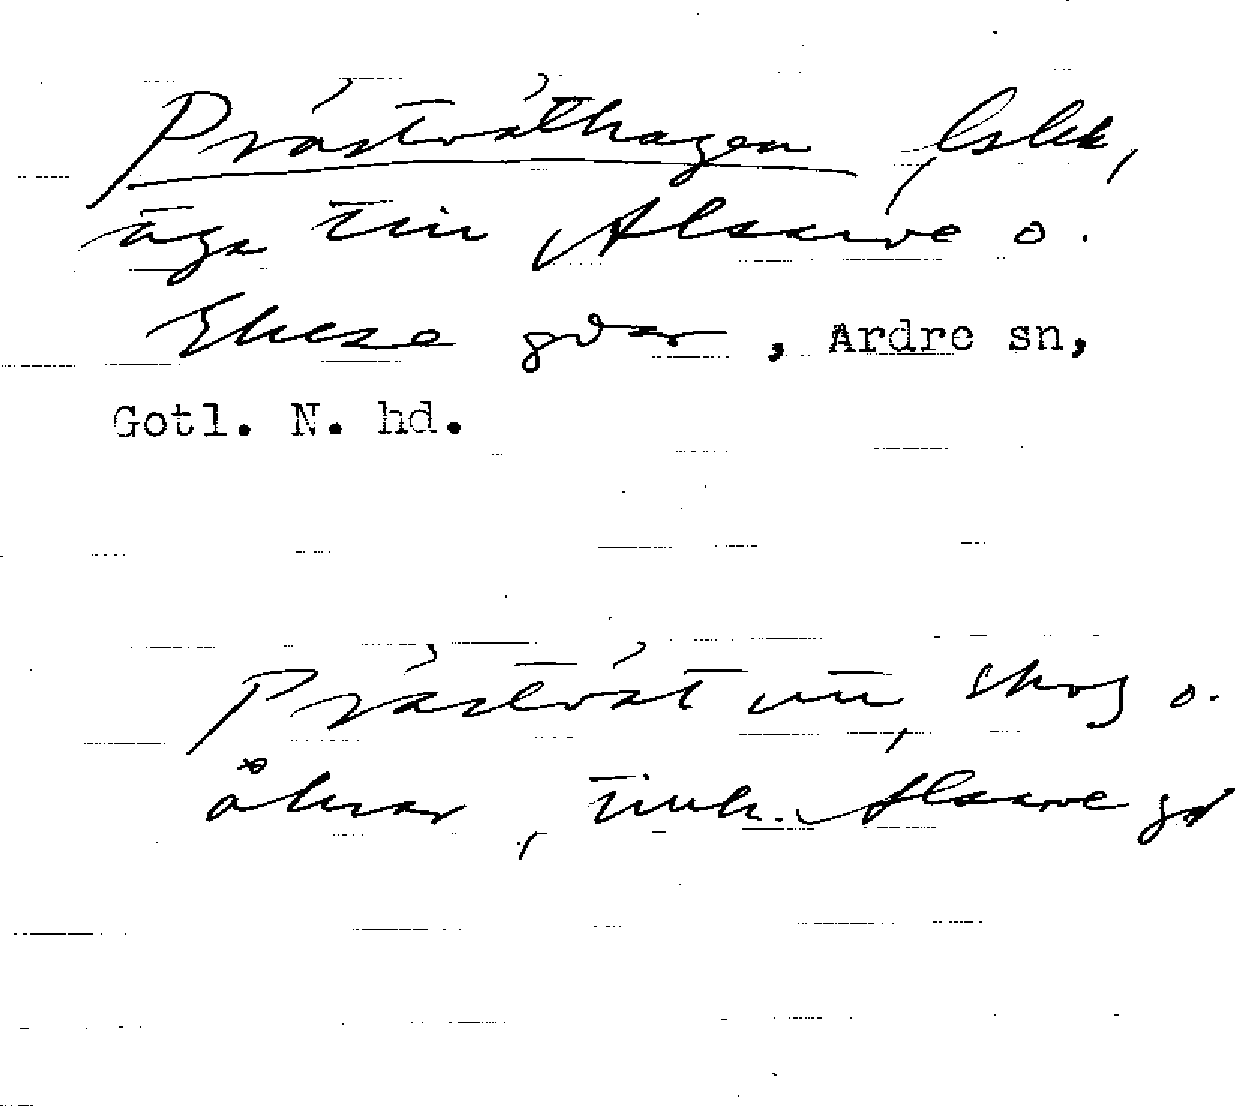 Prästväthagen, Islek,
äga till Alsarve o.
Ekese gdar, Ardre sn,
Gotl. N. hd.
Prästvät un, skog o.
åkrar, tillh. Alsarve gd